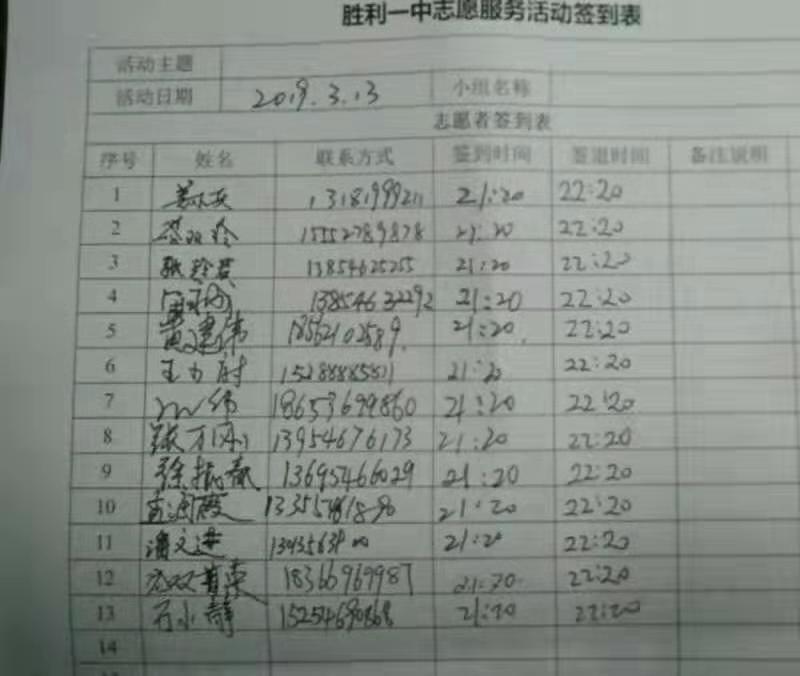 胜利一中志愿服务活动签到表
活动主题
活动日期 2019.3.13 小组名称
志愿者签到表
序号 姓名 联系方式 签到时间 签退时间 备注说明
1 13181999211 21:20 22:20
2 15552789878 21:20 22:20
3 13854625255 21:20 22:20
4 13854632292 21:20 22:20
5 黄建伟 18562102589 21:20 22:20
6 15288885821 21:20 22:20
7 18653699860 21:20 22:20
8 张万刚 13954676173 21:20 22:20
9 徐振 13695466029 21:20 22:20
10 21:20 22:20
11 潘文进 21:20 22:20
12 18366969987 21:20 22:20
13 石小静 15254690868 21:20 22:20
14